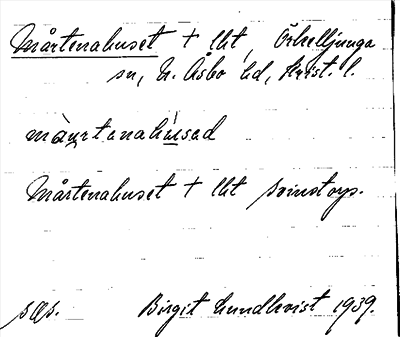 Mårtenahuset + lht, Örkelljunga
sn, N. Åsbo hd, Krist. l.
màu̯rtanahu̍sad
Mårtenahuset + lht Svinstorp.
sæs. Birgit Lundkvist 1939.